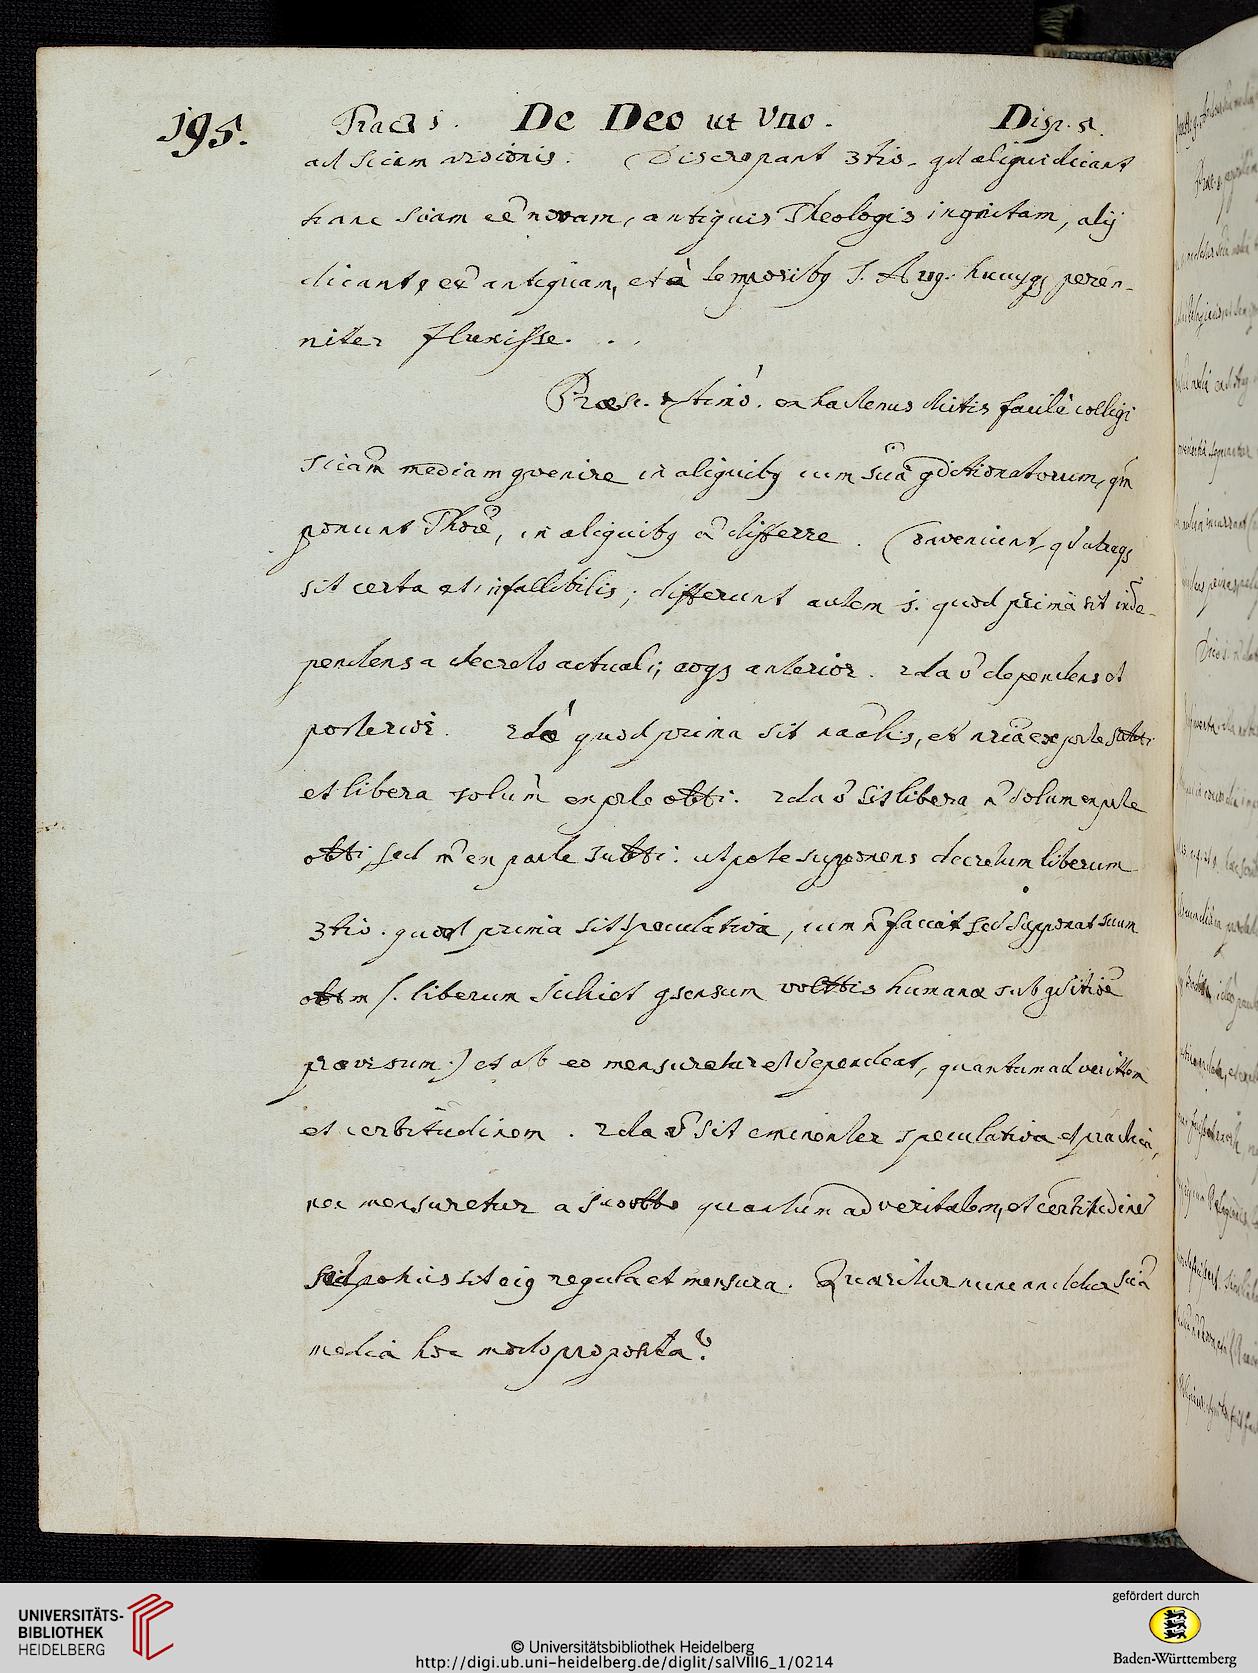 195. Tract 1. De Deo ut Uno. Disp. 5.
ad sciam visionis. Discrepant 3tio. qd aliqui dicant
hanc sciam eē novam, antiquis Theologis ingnitam, alij
dicant, eē antiquam, et à temporibq S. Aug. hucusqs peren-
niter fluxisse. . .
Præsc. ex hactenus dictis facilè colligi
sciam mediam gvenire in aliquibq cum sciā gditionatorum, qm
ponunt Thoē, in aliquibq ā differre. Conveniunt, qd utraqs
sit certa et infallibilis; differunt autem 1. quod prima sit inde-
pendens a decreto actuali; eoqs anterior. 2da v̄ dependens et
posterior. 2dò quod prima sit naālis, et nriā ex prte subti
et libera solum ex prte obti. 2da v̄ sit libera n̄ solum ex prte
obti, sed et ex parte subti. utpote supponens decretum liberum
3tio. quod prima sit speculativa, cum n̄ faciat sed supponat suum
obtm (. liberum scilicet gsensum volttis humanæ sub gditioē
prævisum .) et ab eo mensuretur et dependeat, quantum ad verittem
et certitudinem. 2da v̄ sit eminenter speculativa et practica,
nec mensuretur a suo obto quantum ad veritatem, et certitudinē
sed potius sit eiq regula et mensura. Quæritur nunc an detur sciā
media hoc modo proposita?
UNIVERSITÄTS-
BIBLIOTHEK
HEIDELBERG
© Universitätsbibliothek Heidelberg
http://digi.ub.uni-heidelberg.de/diglit/salVIII6_1/0214
gefördert durch
Baden-Württemberg